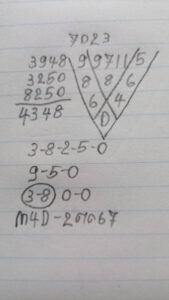 7023
3948 9 9711 5
3250 8 8 6
8250 6 4
4348 0
3-8-2-5-0
9-5-0
3-8 0-0